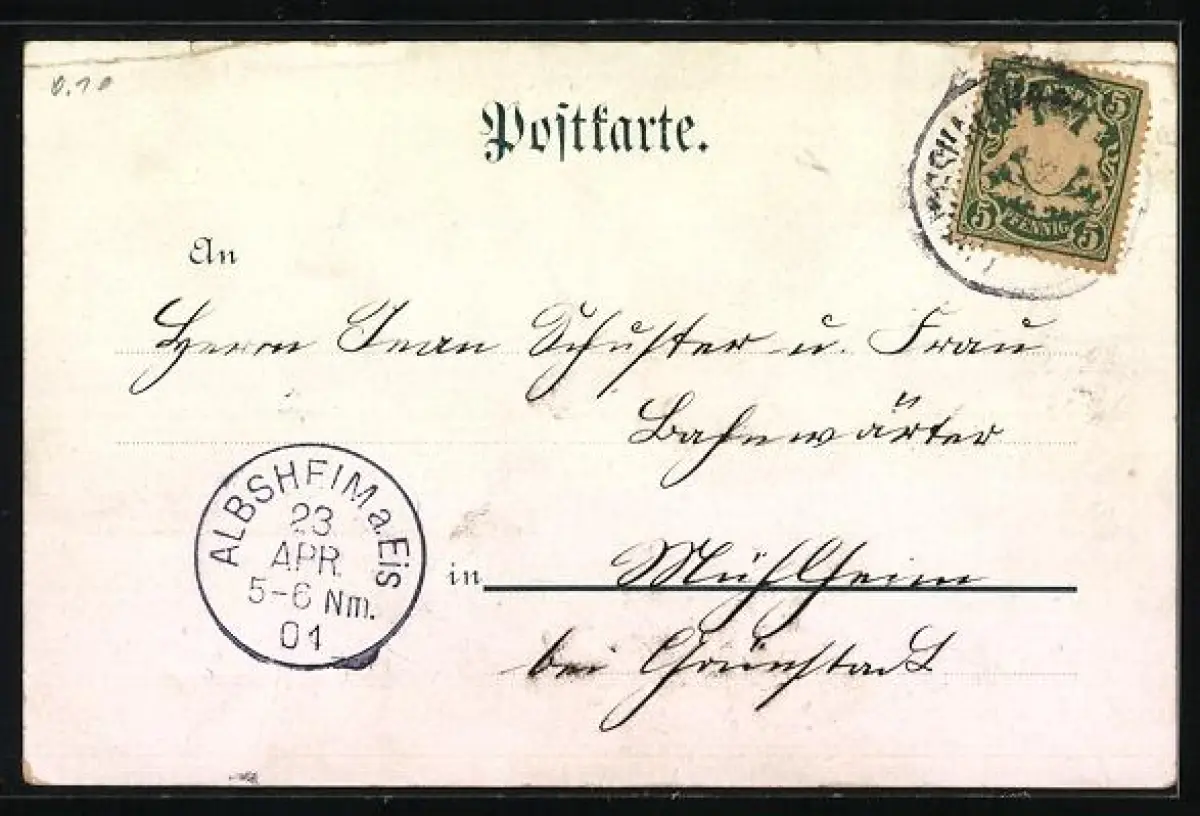 0.10
Postkarte.
5 5
PFENNIG
5 5
An
Herrn Jean Schuster u. Frau
Bahnwärter
ALBSHEIM a. Eis
23
APR.
5-6 Nm.
01
in Mühlheim
bei Grünstadt